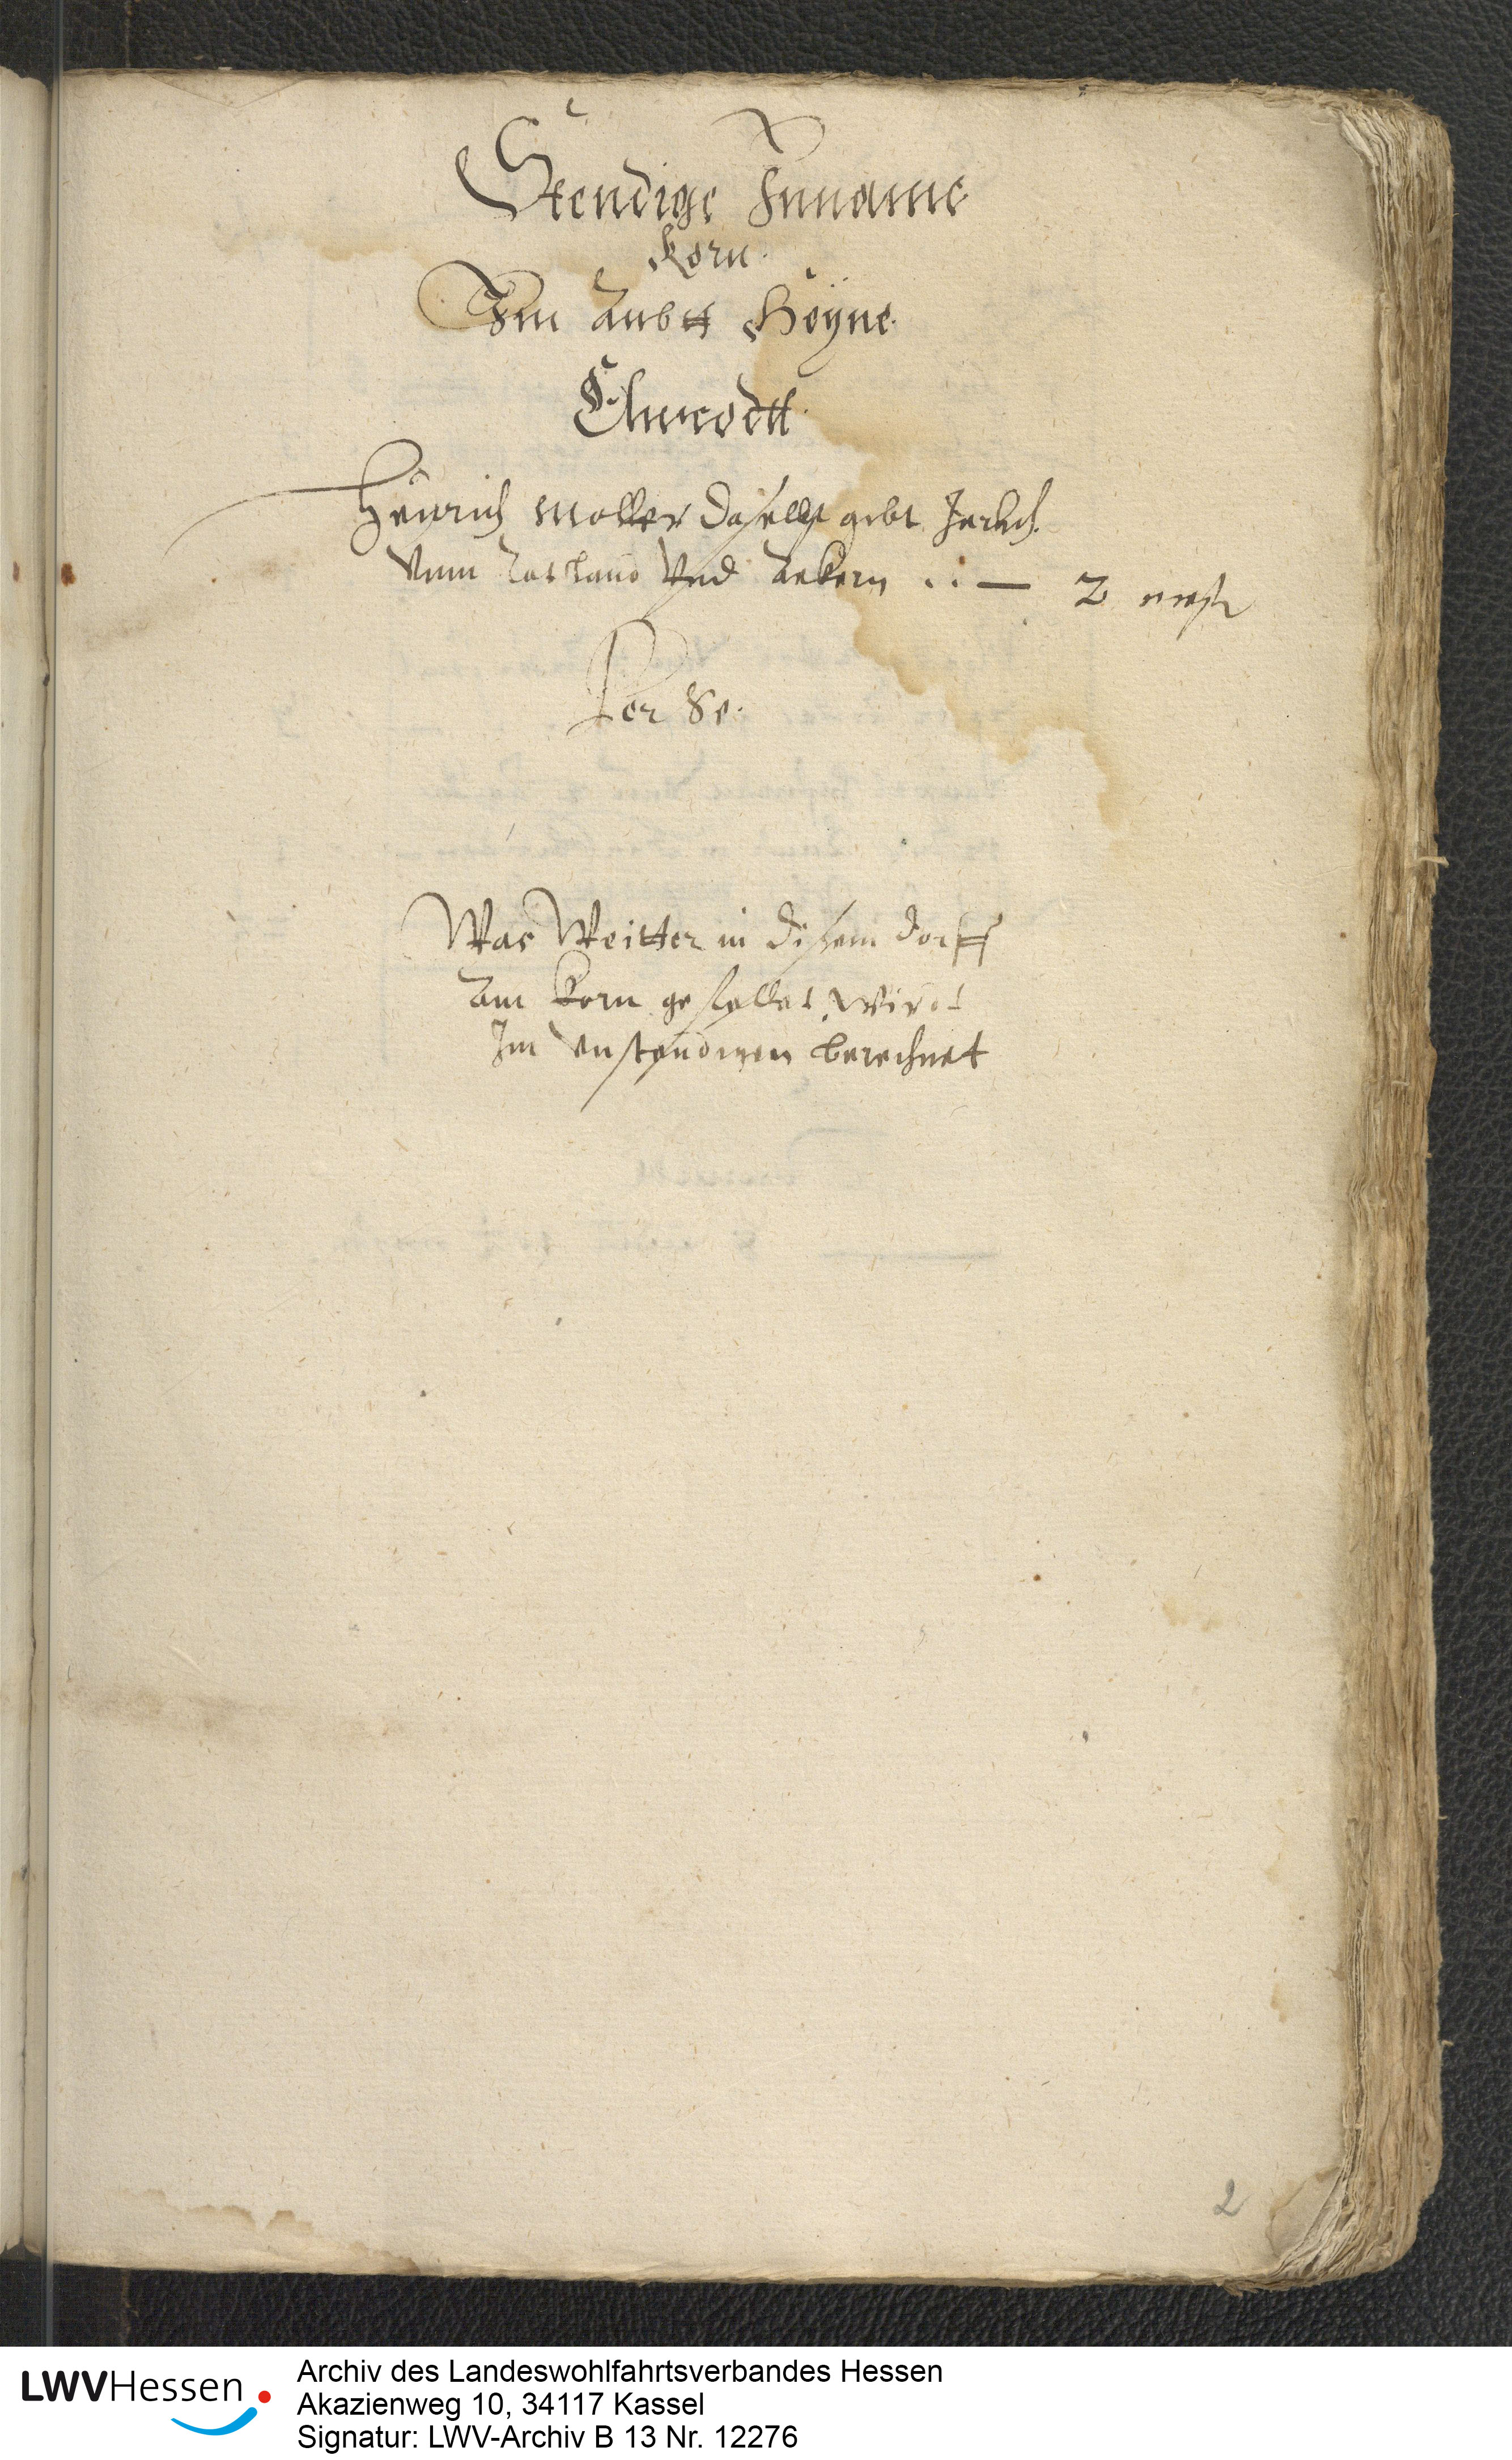 Stendige Inname
Korn.
Im Ambtt Heÿne.
Elnrodtt.
Heinrich Moller daselbst gibt Jerlich.
Vom Rotland Vnd Aekern . . — 2 mesten
Per Se.
Was Weitter in disem dorff
Am Korn gefellet, Wirdt
Im Vnstendigen berechnet
2
LWVHessen
Archiv des Landeswohlfahrtsverbandes Hessen
Akazienweg 10, 34117 Kassel
Signatur: LWV-Archiv B 13 Nr. 12276